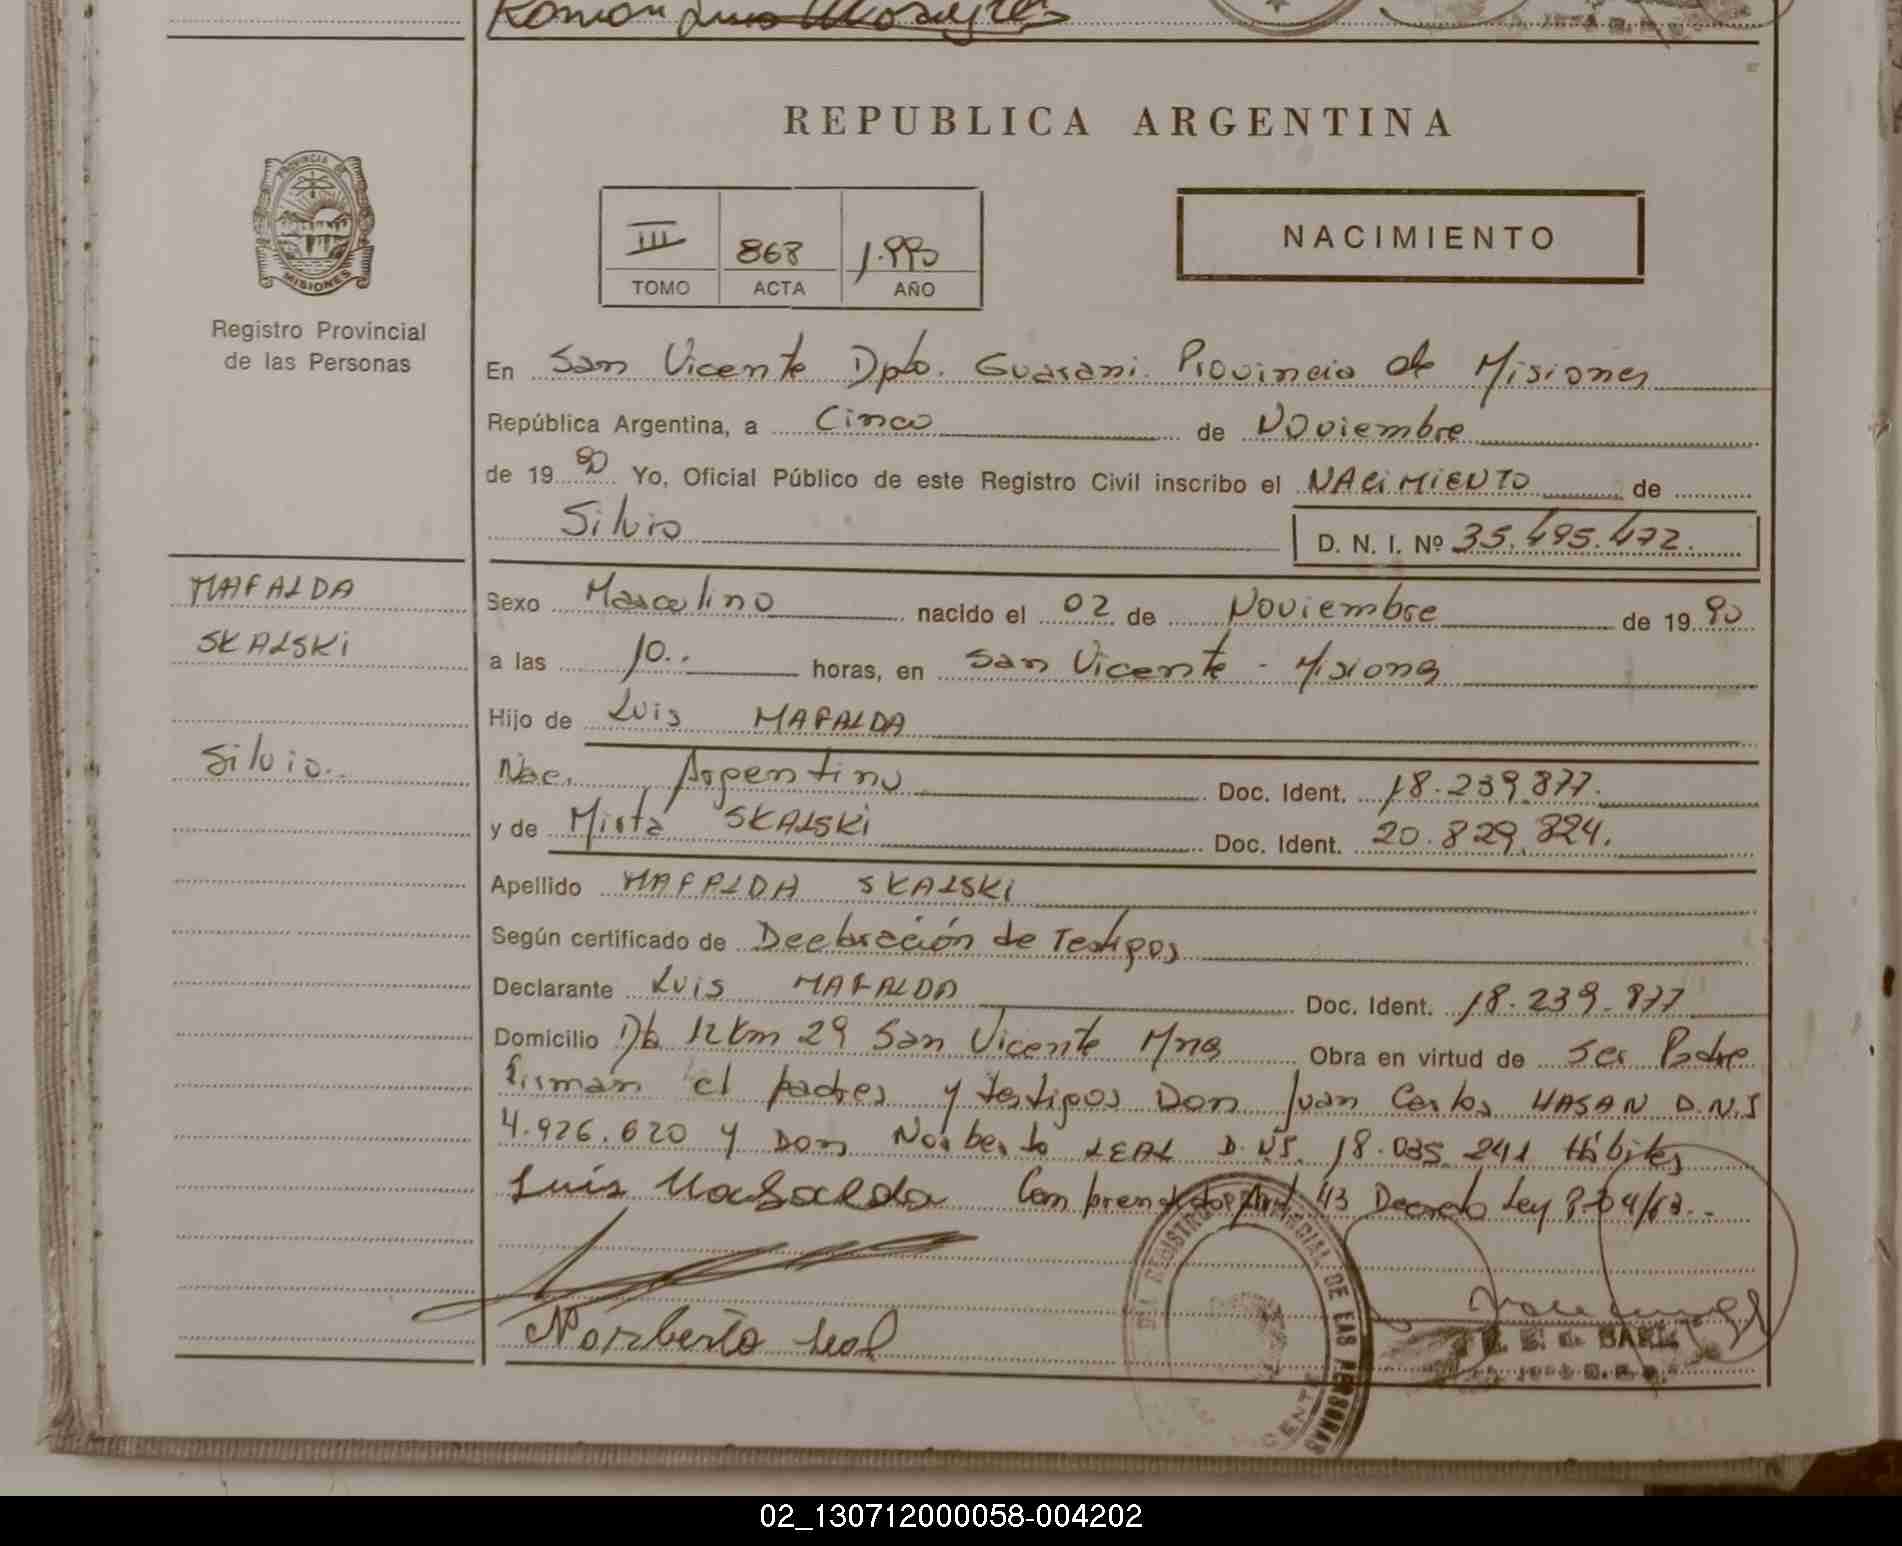 Ramon Luis
REPUBLICA ARGENTINA
PROVINCIA DE
MISIONES
Registro Provincial
de las Personas
III 868 1.990
TOMO ACTA AÑO
NACIMIENTO
En San Vicente Dpto. Guarani. Provincia de Misiones
República Argentina, a Cinco de Noviembre
de 19 90 Yo, Oficial Público de este Registro Civil inscribo el NACIMIENTO de
Silvio
D. N. I. Nº 35.495.472.
MAFALDA
SKALSKI
Silvio.
Sexo Masculino nacido el 02 de Noviembre de 19 90
a las 10.. horas, en San Vicente - Misiones
Hijo de Luis MAFALDA
Nac. Argentino Doc. Ident. 18.239.877.
y de Mirta SKALSKI Doc. Ident. 20.829.824.
Apellido MAFALDA SKALSKI
Según certificado de Declaración de Testigos
Declarante Luis MAFALDA Doc. Ident. 18.239.877
Domicilio 12 Km 29 San Vicente Mnes Obra en virtud de ser Padre
firman el padres y testigos Don Juan Carlos HASAN D.N.I
4.926.620 y Don Norberto LEAL D.N.I. 18.035.241 Hábiles
Luis Mafalda Comprendido Art 43 Decreto Ley
REGISTRO PROVINCIAL DE LAS PERSONAS
Norberto Leal
02_130712000058-004202